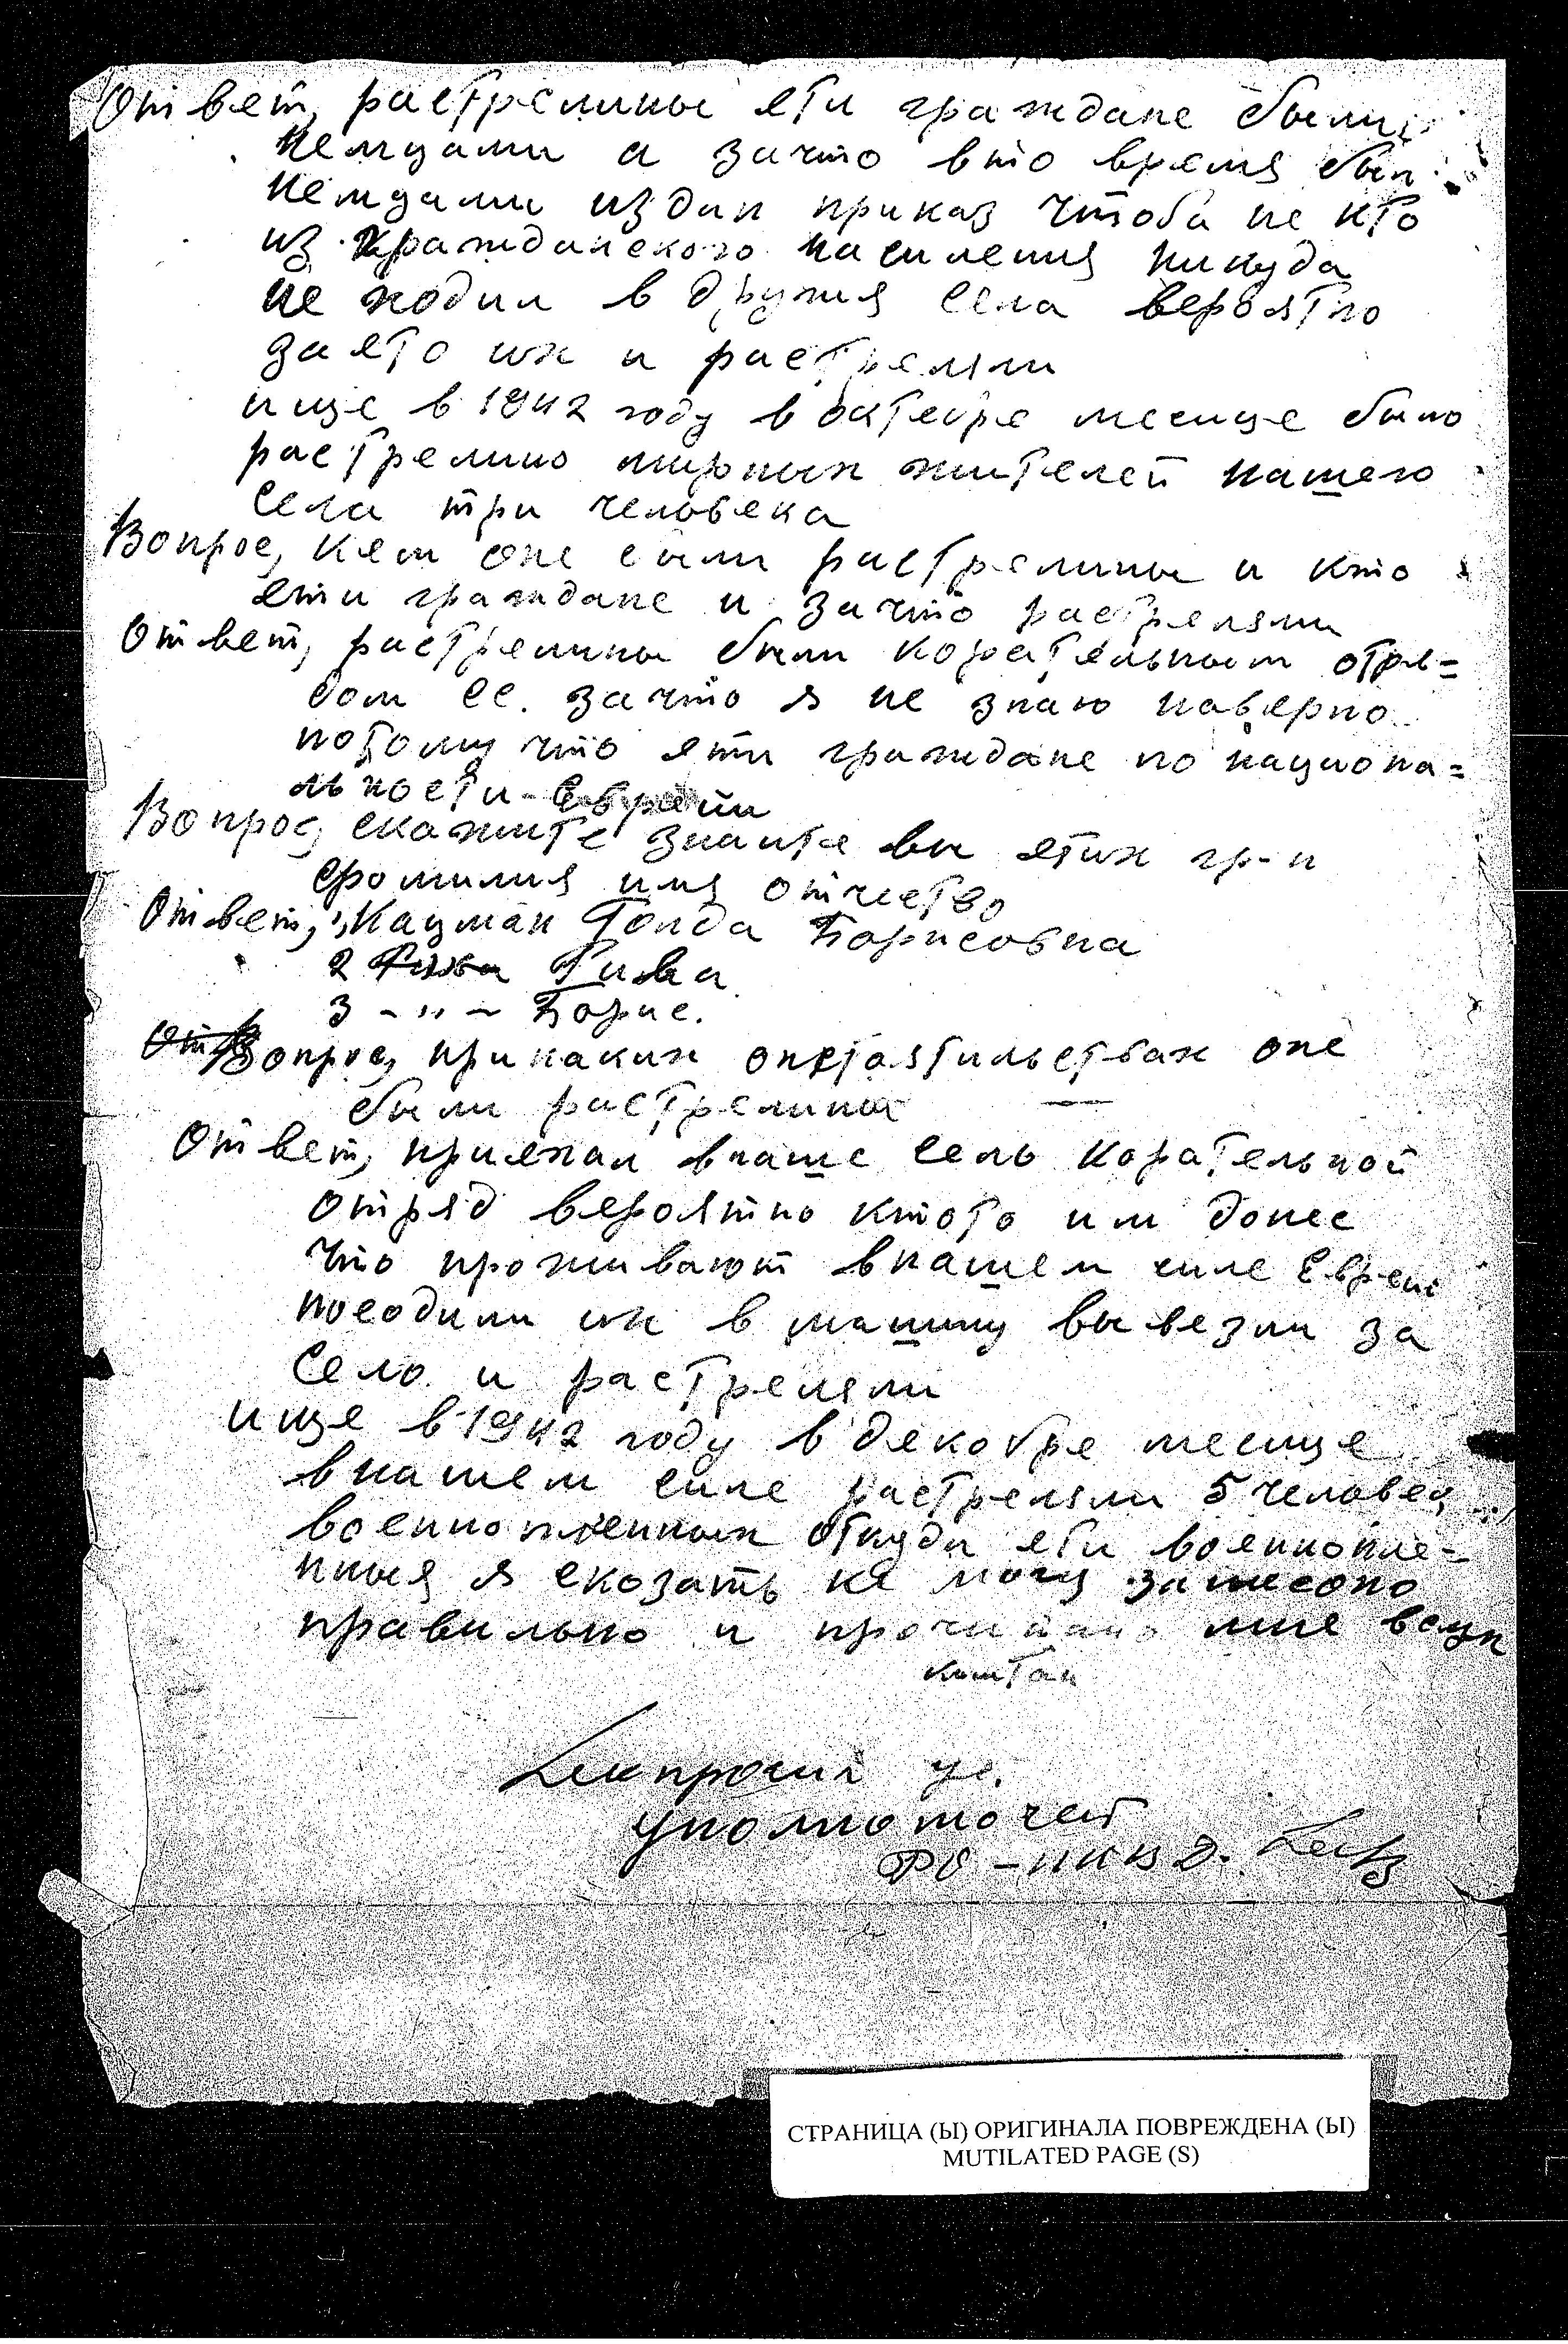 Ответ, растрелины ети граждане были
немцами а зачто вто время был
немцами издан приказ чтоба не кто
из гражданского насиления никуда
не ходил в другия села вероятно
за ето их и растреляли
ище в 1942 году в октебре месице было
растрелино мирных жителей нашего
села три человека
Вопрос, кем оне были растрелины и кто
ети граждане и зачто растреляли
Ответ, растрелины были корательным отря=
дом СС. зачто я не знаю наверно
потому что яти граждане по национа=
льности - Евреи
Вопрос, скажите знаите вы ятих гр-н
фомилия имя отчество
Ответ, 1, Кацман Голда Борисовна
2 Рива
3 - " - Борис.
Вопрос, при каких опстоятильствах оне
были растрелины
Ответ, приехал внаше село корательной
отряд вероятно ктото им донес
что проживают внашем силе Евреи
посодили их в машину вывезли за
село и растреляли
ище в 1942 году в декобре месице
внашем силе растреляли 5 человек
военнопленных откуда ети военнопле-
нныя я скозать не могу записоно
правильно и прочитано мне вслух
уполномочен
РО - НКВД.
СТРАНИЦА (Ы) ОРИГИНАЛА ПОВРЕЖДЕНА (Ы)
MUTILATED PAGE (S)